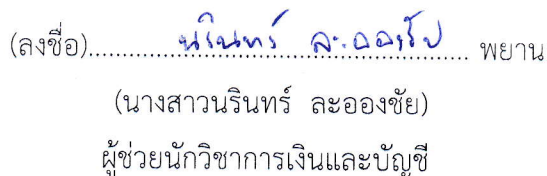 (ลงชื่อ)..........นรินทร์ ละอองชัย.......... พยาน
(นางสาวนรินทร์ ละอองชัย)
ผู้ช่วยนักวิชาการเงินและบัญชี